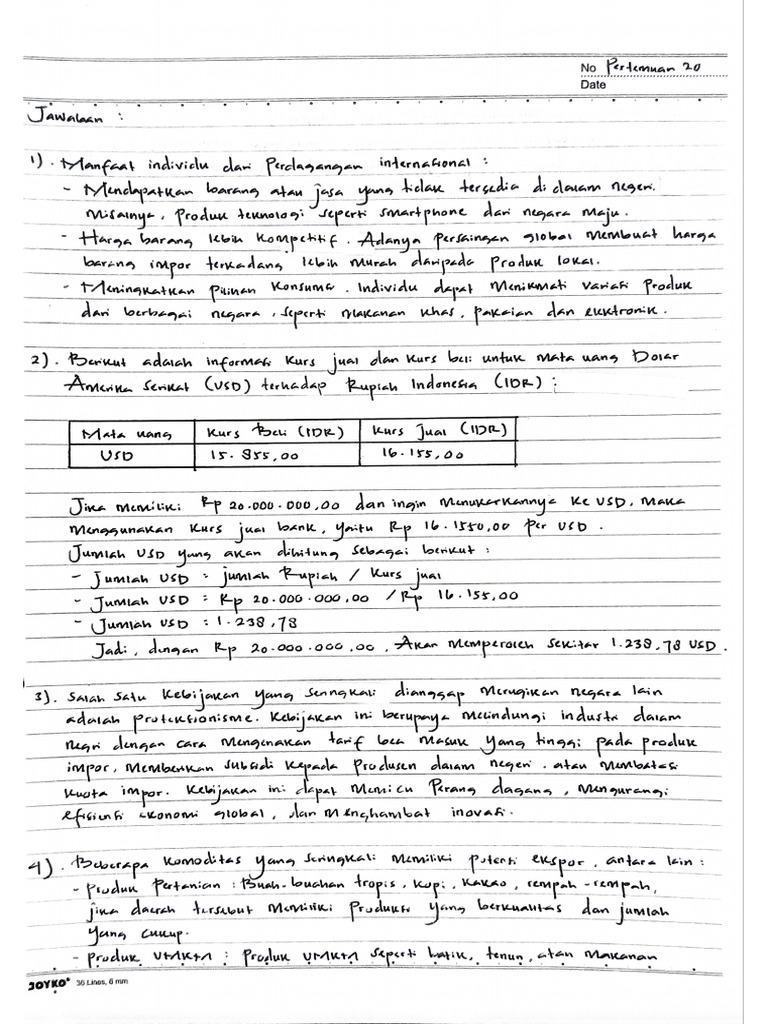 No Pertemuan 20
Date
Jawaban :
1). Manfaat individu dari Perdagangan internasional :
- Mendapatkan barang atau jasa yang tidak tersedia di dalam negeri.
Misalnya, Produk teknologi seperti smartphone dari negara maju.
- Harga barang lebih kompetitif. Adanya persaingan global membuat harga
barang impor terkadang lebih murah daripada produk lokal.
- Meningkatkan pilihan konsumen. Individu dapat menikmati variasi produk
dari berbagai negara, seperti makanan khas, pakaian dan elektronik.
2). Berikut adalah informasi kurs jual dan kurs beli untuk mata uang Dolar
Amerika Serikat (USD) terhadap Rupiah Indonesia (IDR) :
Mata uang Kurs Beli (IDR) Kurs Jual (IDR)
USD 15.855,00 16.155,00
Jika memiliki Rp 20.000.000,00 dan ingin menukarkannya ke USD, maka
menggunakan kurs jual bank, yaitu Rp 16.1550,00 per USD.
Jumlah USD yang akan dihitung sebagai berikut :
- Jumlah USD = jumlah Rupiah / kurs jual
- Jumlah USD = Rp 20.000.000,00 / Rp 16.155,00
- Jumlah USD = 1.238,78
Jadi, dengan Rp 20.000.000,00, Akan memperoleh sekitar 1.238,78 USD.
3). Salah satu kebijakan yang seringkali dianggap merugikan negara lain
adalah proteksionisme. Kebijakan ini berupaya melindungi industri dalam
negri dengan cara mengenakan tarif bea masuk yang tinggi pada produk
impor, memberikan subsidi kepada produsen dalam negeri. atau membatasi
kuota impor. Kebijakan ini dapat memicu perang dagang, mengurangi
efisiensi ekonomi global, dan menghambat inovasi.
4). Beberapa komoditas yang seringkali memiliki potensi ekspor, antara lain :
- Produk Pertanian : Buah-buahan tropis, kopi, kakao, rempah-rempah,
jika daerah tersebut memiliki produksi yang berkualitas dan jumlah
yang cukup.
- Produk UMKM : Produk UMKM seperti batik, tenun, atau makanan
JOYKO® 36 Lines, 6 mm